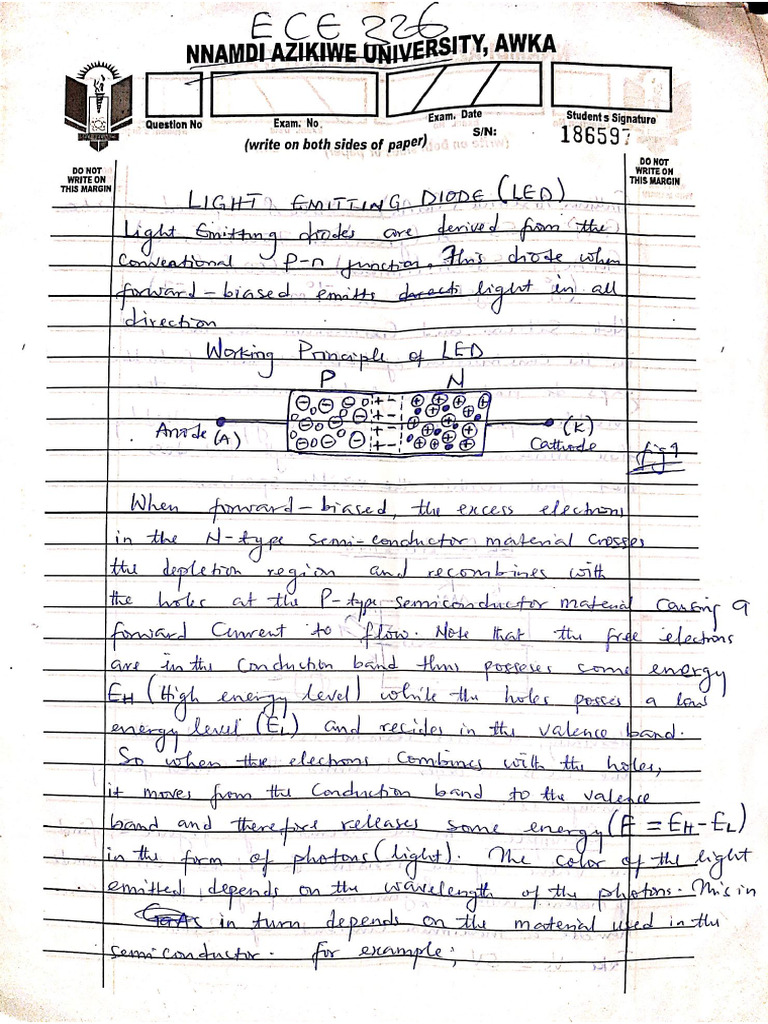 ECE 226
NNAMDI AZIKIWE UNIVERSITY, AWKA
Question No
Exam. No
Exam. Date
Student's Signature
(write on both sides of paper)
S/N: 186597
DO NOT
WRITE ON
THIS MARGIN
DO NOT
WRITE ON
THIS MARGIN
LIGHT EMITTING DIODE (LED)
Light Emitting diodes are derived from the
conventional P-n junction. This diode when
forward-biased emitts light in all
direction
Working Principle of LED
P N
Anode (A)
(K)
Cathode
fig 1
When forward-biased, the excess electrons
in the N-type semi-conductor material crosses
the depletion region and recombines with
the holes at the P-type semiconductor material causing a
forward current to flow. Note that the free electrons
are in the conduction band thus posseses some energy
EH (High energy level) while the holes posses a low
energy level (EL) and resides in the valence band.
So when the electrons combines with the holes,
it moves from the conduction band to the valence
band and therefore releases some energy (E = EH - EL)
in the form of photons (light). The color of the light
emitted depends on the wavelength of the photons. This in
in turn depends on the material used in the
semiconductor. for example;